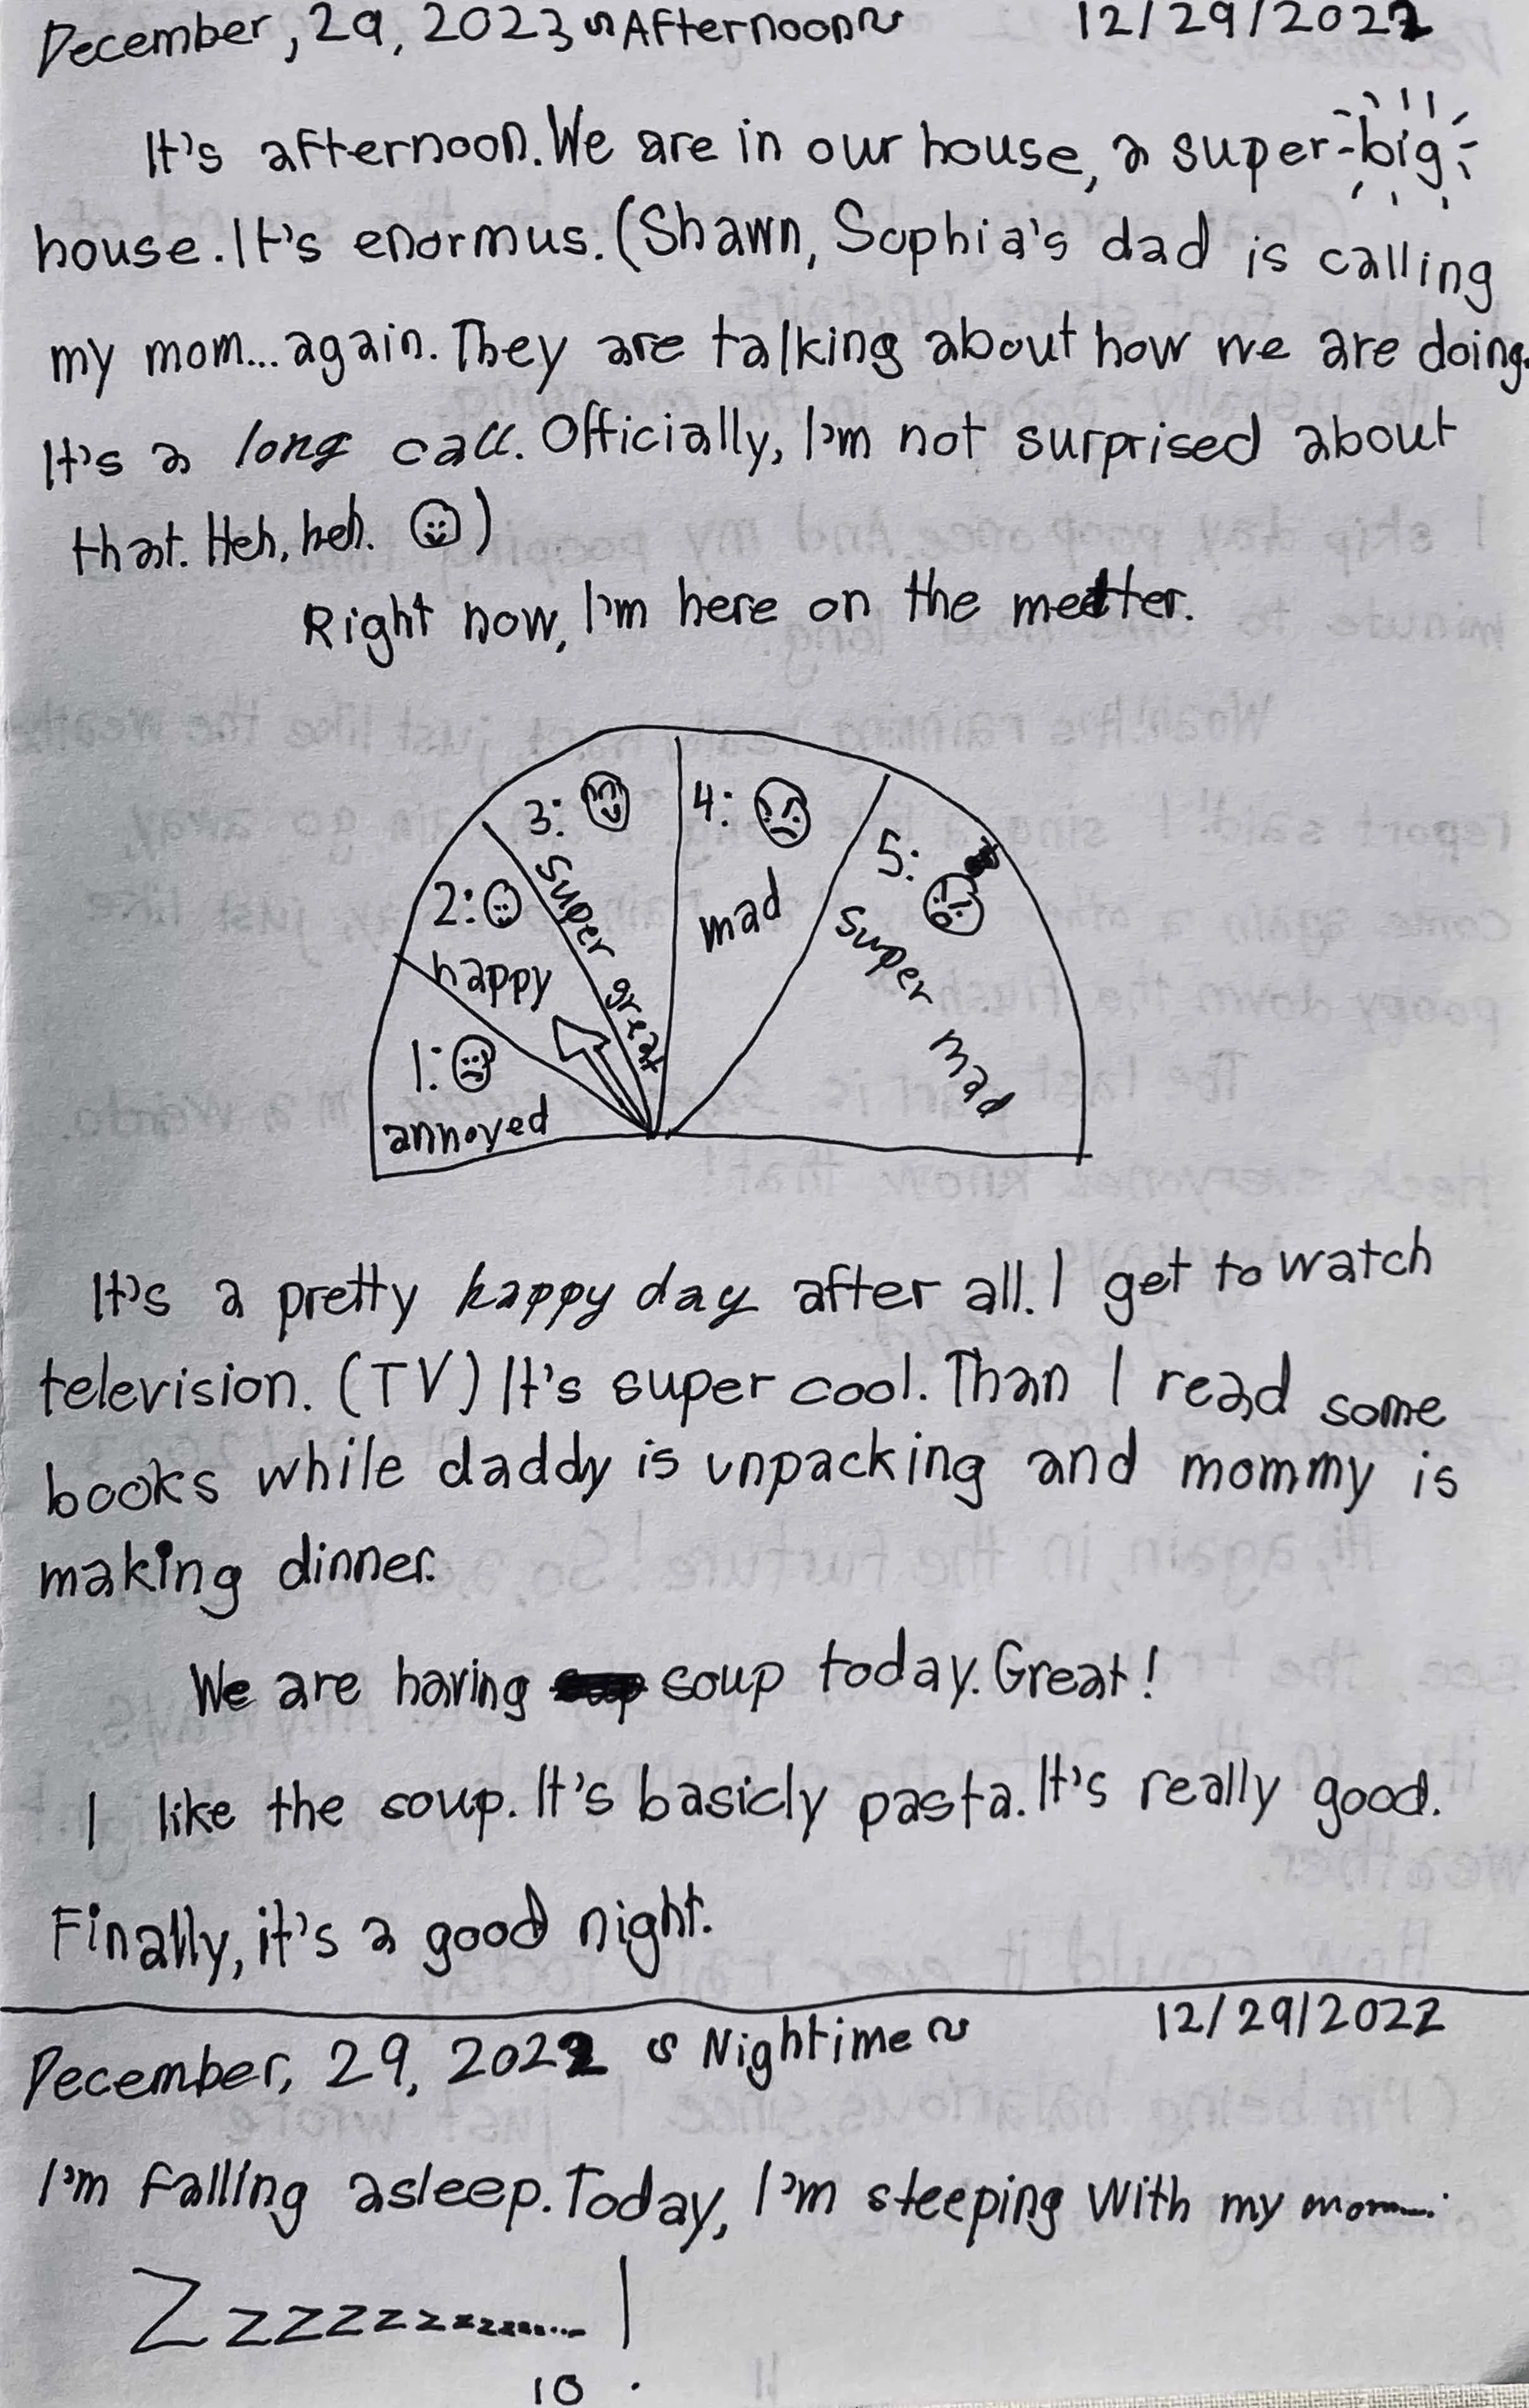 December, 29, 2023 ~Afternoon~ 12/29/2022
It's afternoon. We are in our house, a super-big
house. It's enormus. (Shawn, Sophia's dad is calling
my mom... again. They are talking about how we are doing.
It's a long call. Officially, I'm not surprised about
that. Heh, heh. )
Right now, I'm here on the metter.
3: super great
4: mad
5: super mad
2: happy
1: annoyed
It's a pretty happy day after all. I get to watch
television. (TV) It's super cool. Than I read some
books while daddy is unpacking and mommy is
making dinner.
We are having soup today. Great!
I like the soup. It's basicly pasta. It's really good.
Finally, it's a good night.
December, 29, 2022 ~ Nightime ~ 12/29/2022
I'm falling asleep. Today, I'm sleeping with my mom....
Zzzzzzzzzzz.....!
10